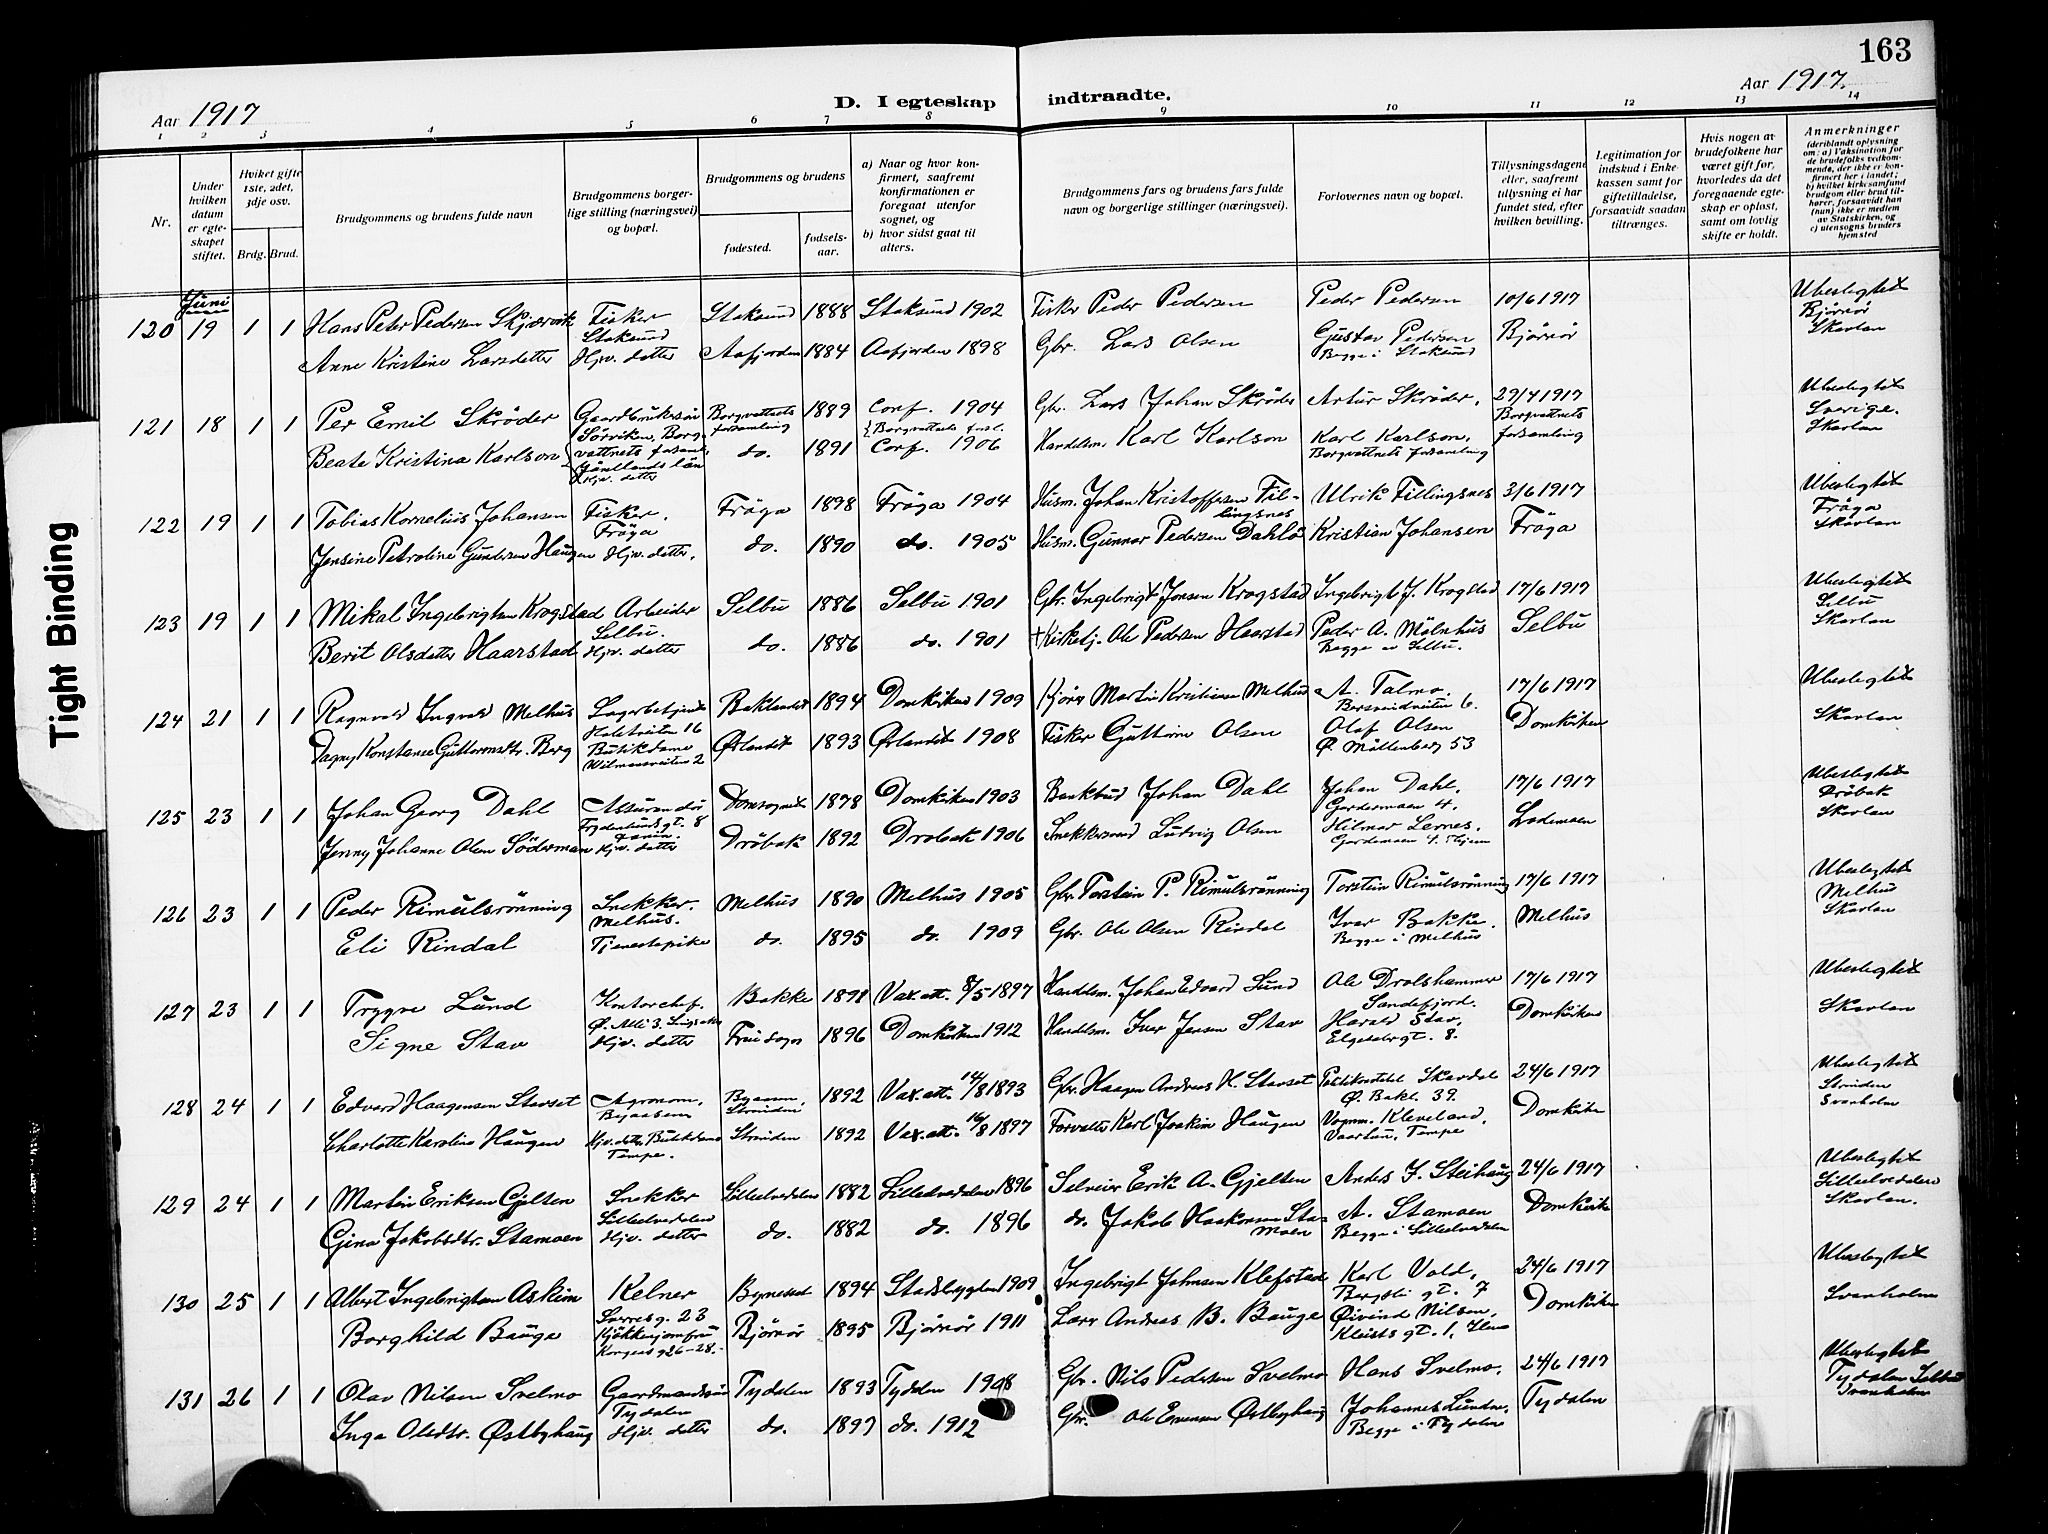 163
Aar 1917
D. I egteskap indtraadte.
Aar 1917.
1 2 3 4 5 6 7 8 9 10 11 12 13 14
Nr.
Under hvilken datum er egte-skapet stiftet.
Hvilket gifte 1ste, 2det, 3dje osv.
Brdg. Brud.
Brudgommens og brudens fulde navn
Brudgommens borger-lige stilling (næringsvei) og bopæl.
Brudgommens og brudens
fødested.
fødsels-aar.
a) Naar og hvor kon-firmert, saafremt konfirmationen er foregaat utenfor sognet, og
b) hvor sidst gaat til alters.
Brudgommens fars og brudens fars fulde navn og borgerlige stillinger (næringsvei).
Forlovernes navn og bopæl.
Tillysningsdagene eller, saafremt tillysning ei har fundet sted, efter hvilken bevilling.
Legitimation for indskud i Enke-kassen samt for giftetilladelse, forsaavidt saadan tiltrænges.
Hvis nogen av brudefolkene har været gift før, hvorledes da det foregaaende egte-skap er opløst, samt om lovlig skifte er holdt.
Anmerkninger (deriblandt oplysning om: a) Vaksination for de brudefolks vedkom-mende, der ikke er kon-firmert her i landet; b) hvilket kirkesamfund brudgom eller brud til-hører, forsaavidt han (hun) ikke er medlem av Statskirken, og c) utensogns bruders hjemsted
Juni
120 19 1 1 Hans Peter Pedersen Skjærvik Fisker Stoksund 1888 Stoksund 1902 Fisker Peder Pedersen Peder Pedersen 10/6 1917 Ubeslegtet
Stoksund Gustav Pedersen Bjørnør Bjørnør
Anne Kristine Larsdatter Hjv. datter Aafjorden 1884 Aafjorden 1898 Gbr. Lars Olsen Begge i Stoksund Skavlan
121 18 1 1 Per Emil Skröder Gaardbrukersøn Borgvattnets forsamling 1889 Conf. 1904 Gbr. Lars Johan Skröder Artur Skröder. 29/4 1917 Ubeslegtet
Sörviken, Borgvattnets forsaml. Borgvattnets Sverige.
Beate Kristina Karlson Jämtlands län do. 1891 Conf. 1906 Handelsm. Karl Karlson Karl Karlson. forsamling Skavlan
Hjv. datter Borgvattnets forsamling
122 19 1 1 Tobias Kornelius Johansen Fisker. Fröya 1898 Fröya 1904 Husm. Johan Kristoffersen Fillingsnes Ulrik Fillingsnes 3/6 1917 Ubeslegtet
Fröya Fröya Fröya
Jensine Petroline Gundersen Haugen Hjv. datter. do. 1890 do. 1905 Husm. Gunnar Pedersen Dahlö Kristian Johansen Skavlan
123 19 1 1 Mikal Ingebrigtsen Krogstad Arbeider Selbu 1886 Selbu 1901 Gbr. Ingebrigt Jonsen Krogstad Ingebrigt J. Krogstad 17/6 1917 Ubeslegtet
Selbu. Selbu Selbu
Berit Olsdatter Haarstad Hjv. datter do. 1886 do. 1901 † Kirketj. Ole Pedersen Haarstad Peder A. Mölnhus Skavlan
Begge av Selbu.
124 21 1 1 Ragnvald Ingvald Melhus Lagerbetjent Baklandet 1894 Domkirken 1909 Kjörer Martin Kristiansen Melhus A. Talmo. 17/6 1917 Ubeslegtet
Butikdame Olaf Olsen Domkirken Skavlan
Dagny Konstanse Guttormsdtr. Berg Ørlandet 1893 Ørlandet 1908 Fisker Guttorm Olsen Ø. Möllenberg 53
125 23 1 1 Johan Georg Dahl Assurandör Domsognet 1878 Domkirken 1903 Bankbud Johan Dahl Johan Dahl. 17/6 1917 Ubeslegtet
Gardemoen 4. Drøbak
Jenny Johanne Olsen Söderman Hjv. datter Drøbak 1892 Drøbak 1906 Snekkersvend Ludvig Olsen Hilmar Lernes. Lademoen Skavlan
126 23 1 1 Peder Rimulsrönning Snekker. Melhus 1890 Melhus 1905 Gbr. Torstein P. Rimulsrönning Torstein Rimulsrönning 17/6 1917 Ubeslegtet
Melhus. Ivar Bakke. Melhus Melhus
Eli Rindal Tjenestepike do. 1895 do. 1909 Gbr. Ole Olsen Rindal Begge i Melhus Skavlan
127 23 1 1 Trygve Lund Kontorchef. Bakke 1878 Vax.att. 8/5 1897 Handelsm. Johan Edvard Lund Ole Drolshammer 17/6 1917 Ubeslegtet
Sandefjord. Domkirken
Signe Stav Hjv. datter Frue sogn 1896 Domkirken 1912 Handelsm. Iver Jensen Stav Harald Stav. Skavlan
Elgesetergt. 8.
128 24 1 1 Edvard Haagensen Stavset Agronom. 1892 Vax.att. 14/8 1893 Gbr. Haagen Andreas H. Stavset Skardal 24/6 1917 Ubeslegtet
Strinden Ø. Bakl. 39. Strinden
Charlotte Karoline Haugen Strinden 1892 Vax.att. 16/8 1897 Forvalter Karl Joakim Haugen Kleveland, Domkirken Svanholm
Tempe. Tempe
129 24 1 1 Martin Eriksen Gjelten Snekker Lilleelvedalen 1882 Lilleelvedalen 1896 Selveier Erik A. Gjelten Anders J. Steihaug 24/6 1917 Ubeslegtet
Lilleelvedalen Domkirken Lilleelvedalen
Gina Jakobsdtr. Stamoen Hjv. datter do. 1882 do. 1896 do. Jakob Haakonsen Stamoen A. Stamoen Skavlan.
Begge i Lilleelvedalen
130 25 1 1 Albert Ingebrigtsen Askim Kelner Bynesset 1894 Stadsbygden 1909 Ingebrigt Johnsen Klefstad Karl Vold, 24/6 1917 Ubeslegtet
Øivind Nilsen, Domkirken Svanholm
Borghild Bauge Kjøkkenjomfru Bjørnør 1895 Bjørnør 1911 Lærer Andreas B. Bauge Kleists gt. 1, Ilen
Kongens g 26-28.
131 26 1 1 Olav Nilsen Svelmo Gaardmandssøn Tydalen 1893 Tydalen 1908 Gbr. Nils Pedersen Svelmo Hans Svelmo. 24/6 1917 Ubeslegtet
Tydalen Johannes Lunden. Tydalen Tydalen Selbu
Inga Olsdtr. Østbyhaug Hjv. datter do. 1897 do. 1912 Gbr. Ole Østbyhaug Begge i Tydalen Svanholm
Tight Binding